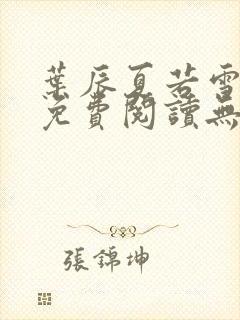 葉辰夏若雪
免費閱讀無
張錦坤